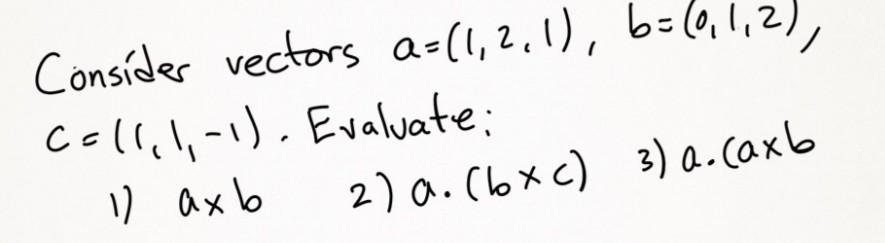 Consider vectors a=(1,2,1), b=(0,1,2),
c=(1,1,-1). Evaluate:
1) a×b 2) a.(b×c) 3) a.(a×b